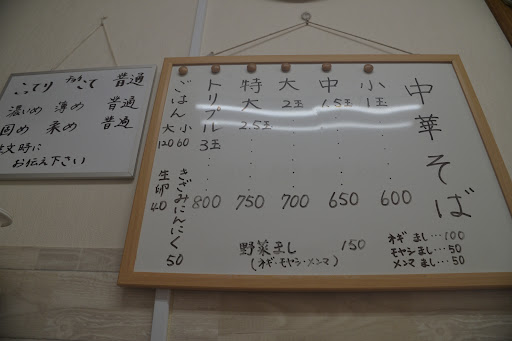 こってり チョイこて 普通
濃いめ 薄め 普通
固め 柔め 普通
文時に
お伝え下さい
中華そば
小 1玉 600
中 1.5玉 650
大 2玉 700
特大 2.5玉 750
トリプル 3玉 800
ごはん 大120 小60
生卵 40
きざみにんにく 50
野菜まし 150
(ネギ・モヤシ・メンマ)
ネギ まし…100
モヤシ まし…50
メンマ まし…50